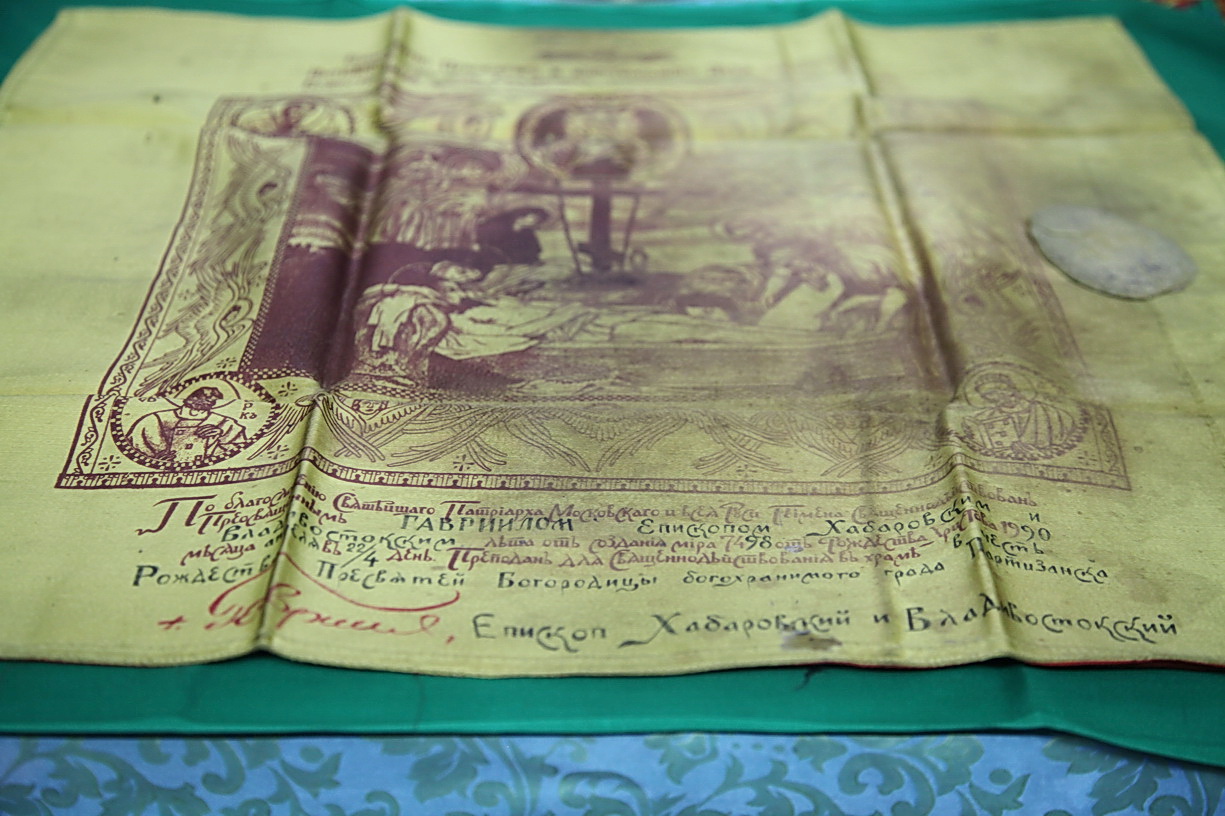 По благосло ию Святѣйшаго Патріарха Московскаго и всея Руси Пимена священнодѣйствованъ
Преосвященнымъ ГАВРИИЛОМ Епископом Хабаровским и
Владивостокским лѣта отъ созданія міра 7498 отъ рождества христова 1990
мѣсяца въ 22/4 день. Преподанъ для священнодѣйствованія въ храмѣ в честь
Рождества Пресвятей Богородицы богохранимого града Партизанска
+ Гавриил, Епископ Хабаровский и Владивостокский